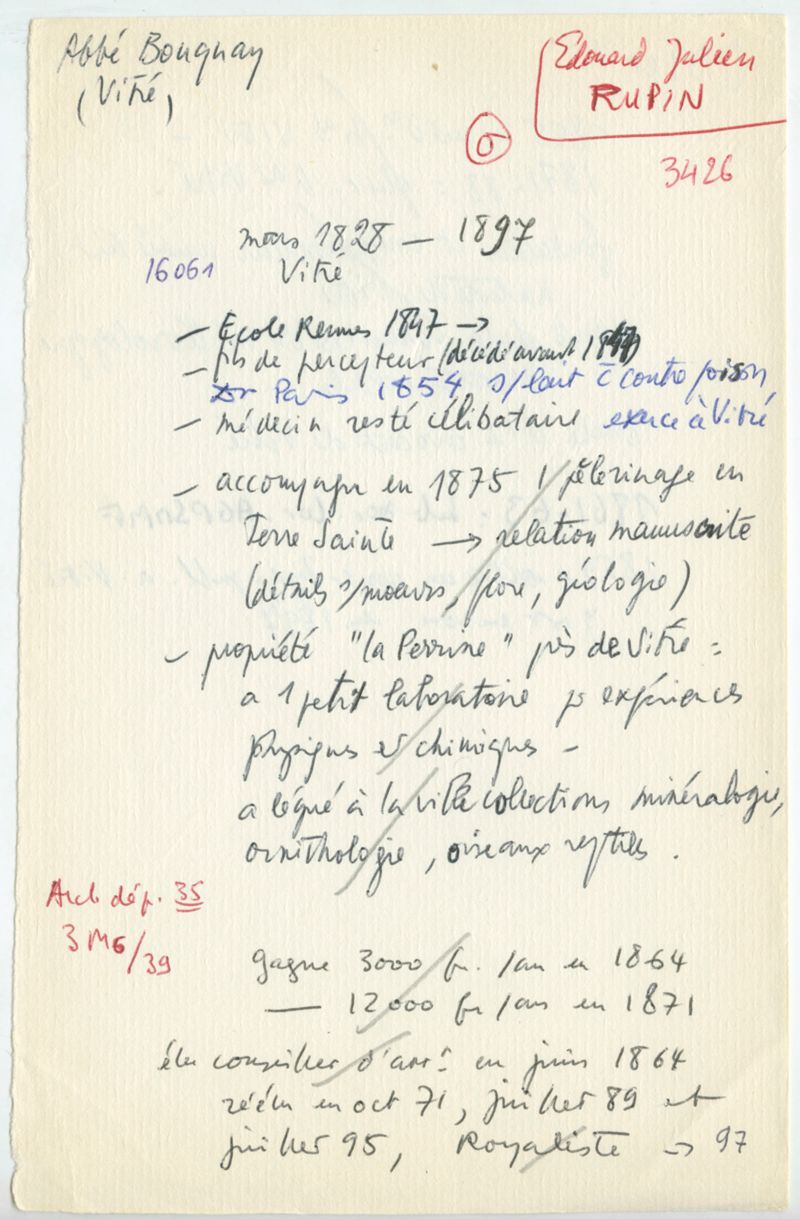 Abbé Bougnay
(Vitré)
Édouard Julien
RUPIN
σ
3426
mars 1828 — 1897
16061 Vitré
— École Rennes 1847 →
— fils de percepteur (décédé avant 1847)
Dr Paris 1854 s/lait c̄ contre poison
— médecin resté célibataire exerce à Vitré
— accompagne en 1875 1 pèlerinage en
Terre Sainte → relation manuscrite
(détails s/moeurs, flore, géologie)
— propriété "la Perrine" près de Vitré =
a 1 petit laboratoire pr expériences
physiques et chimiques —
a légué à la ville collections minéralogie,
ornithologie, oiseaux reptiles.
Arch dép. 35
3 M6/39
gagne 3000 fr. /an en 1864
— 12000 fr /ans en 1871
élu conseiller d'arrt en juin 1864
réélu en oct 71, juillet 89 et
juillet 95, Royaliste → 97